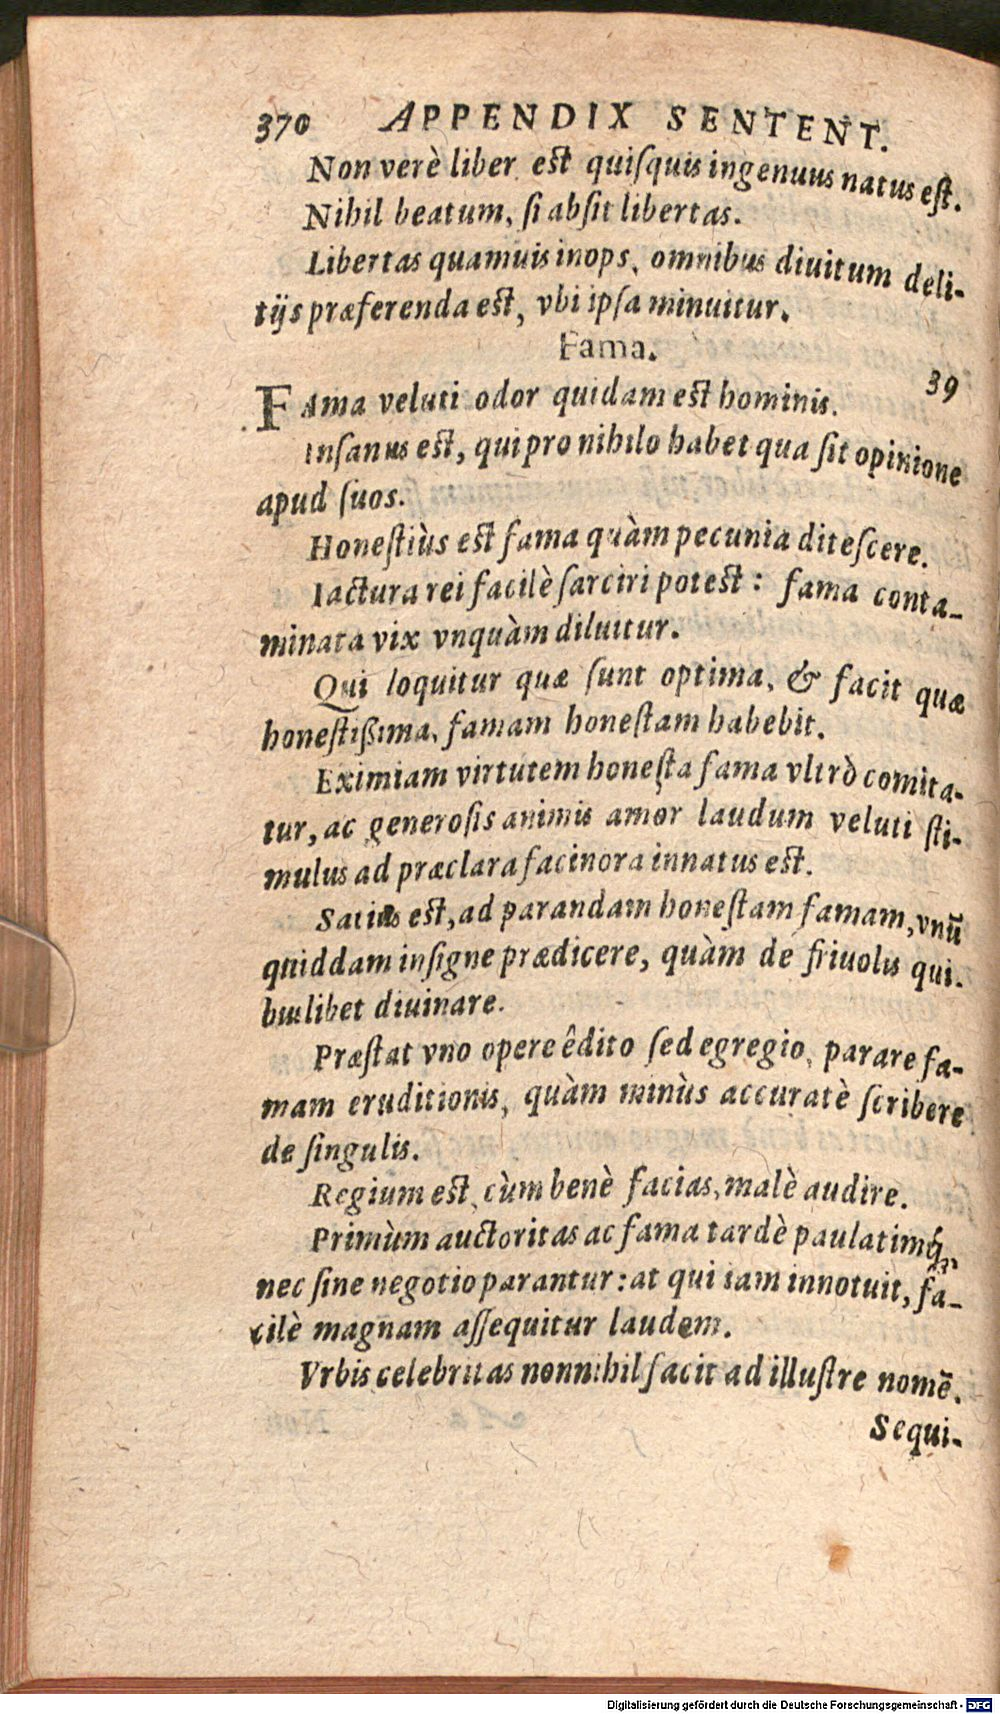 370 APPENDIX SENTENT.
Non verè liber est quiſquis ingenuus natus eſt.
Nihil beatum, ſi abſit libertas.
Libertas quamuis inops, omnibus diuitum deli-
tijs præferenda est, vbi ipſa minuitur.
Fama.
39
FAma veluti odor quidam est hominis.
Inſanus est, qui pro nihilo habet qua ſit opinione
apud ſuos.
Honeſtiùs est fama quàm pecunia diteſcere.
Iactura rei facilè ſarciri potest: fama conta-
minata vix vnquàm diluitur.
Qui loquitur quæ ſunt optima, & facit quæ
honeſtißima, famam honeſtam habebit.
Eximiam virtutem honeſta fama vltrò comita-
tur, ac generoſis animis amor laudum veluti ſti-
mulus ad præclara facinora innatus est.
Satius est, ad parandam honeſtam famam, vnū
quiddam inſigne prædicere, quàm de friuolis qui-
buslibet diuinare.
Præſtat vno opere êdito ſed egregio, parare fa-
mam eruditionis, quàm minùs accuratè ſcribere
de ſingulis.
Regium est, cùm benè facias, malè audire.
Primùm auctoritas ac fama tardè paulatimq́;
nec ſine negotio parantur: at qui iam innotuit, fa-
cilè magnam aſſequitur laudem.
Vrbis celebritas nonnihil facit ad illuſtre nomē.
Sequi-
Digitalisierung gefördert durch die Deutsche Forschungsgemeinschaft - DFG